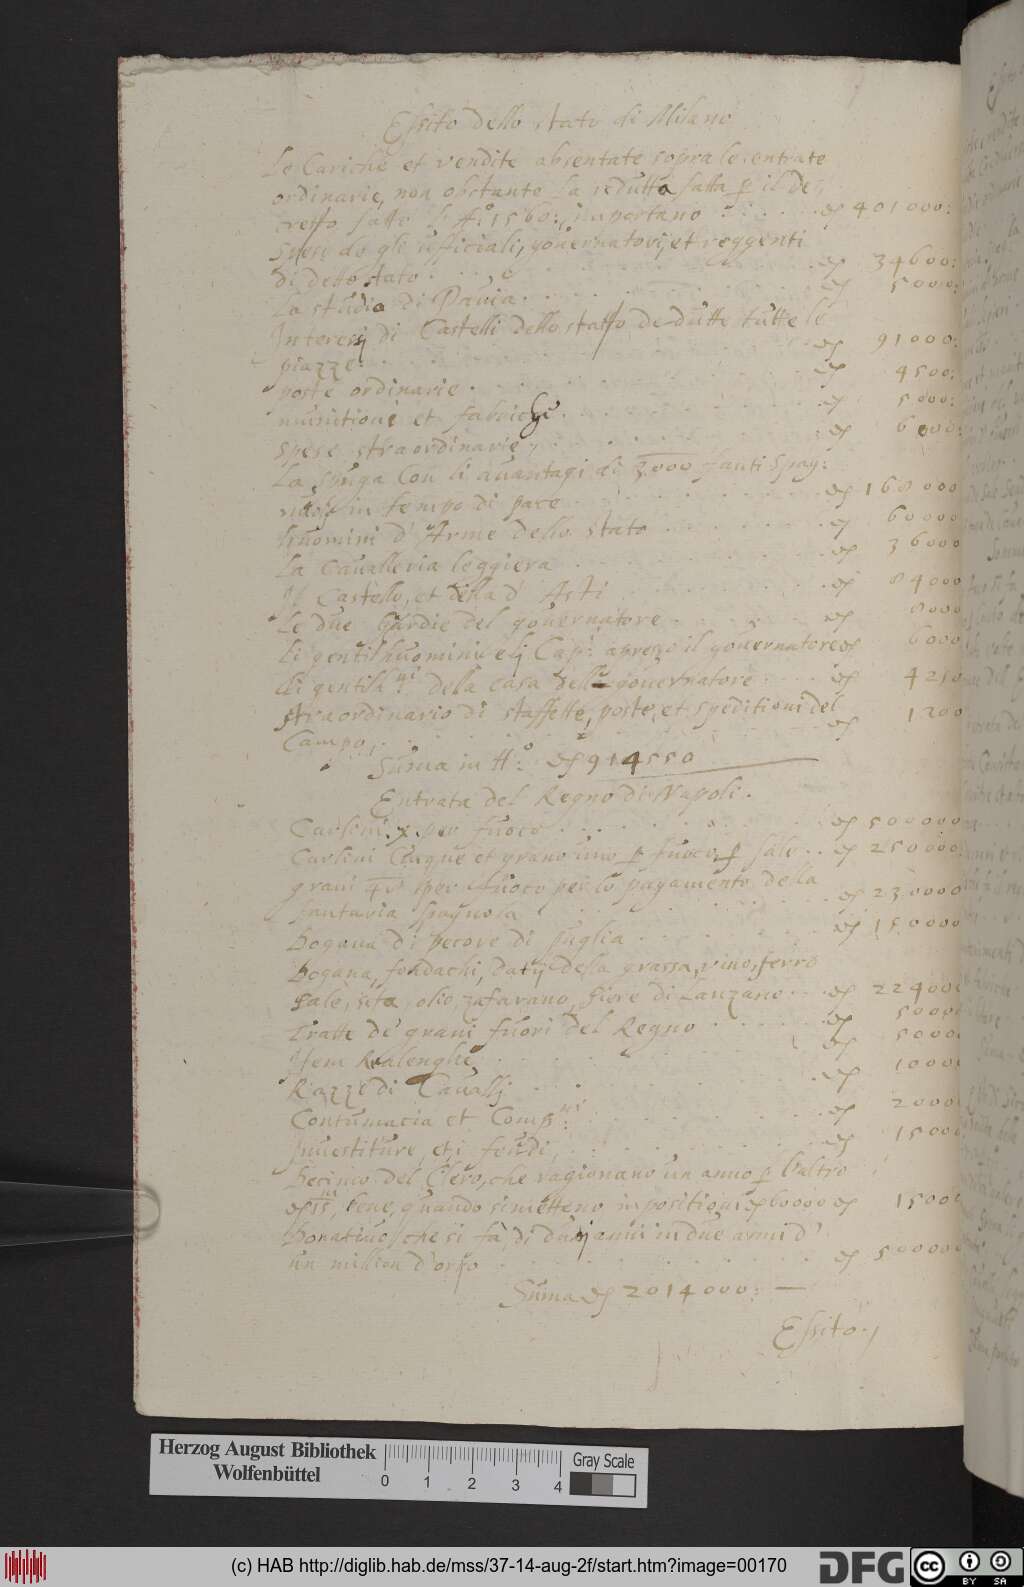 Essito dello stato di Milano
Le Cariche et vendite absentate sopra le entrate
ordinarie, non obstante la redutta fatta p il de,
cretto fatto l'Aº 1560: importano 401000:
Spese de gli ufficiali, governatori, et reggenti
di detto stato 34600:
La studio di Pavia 5000:
Interessi di Castelli dello statto dedutte tutte le
piazze 91000:
poste ordinarie 4500:
munitione et fabriche 5000:
spese straordinarie 6000:
La paga Con li avantagi di 3000 fanti Spag:
in tempo di pace 168000
huomini d'Arme dello stato 60000
La Cavalleria leggiera 36000
Il Castello, et Citta d'Asti 84000
Le due gardie del governatore 8000
Li gentilhuomini e li Cap: apresso il governatore 6000
Li gentilh:ni della casa dell governatore 4250
straordinario di staffette, poste, et speditioni del
Campo, 1200
Suma in Aº: 914550
Entrata del Regno di Napoli.
Carlini x. per fuoco 500000
Carlini Cinque et grano uno p fuoco p sale 250000:
grani per fuoco per lo pagamento della
fantaria spagnola 230000
Dogana di pecore di puglia 150000
Dogana, fondachi, datij della grassa, vino, ferro
sale, seta, olio, zafarano, fiere di Lanzano 224000
Tratte de grani fuori del Regno 5000
Item Realenghe 5000
Razze di Cavalli 1000
Contumacia et Comp:ni 2000
Investiture, et i feudi, 15000
Decime del Clero, che ragionano un anno p l'altro
15, bene, quando si mettono impositioni 60000 15000
Donativo che si fa di duoi anni in due anni d'
un million d'oro 500000
Suma 2014000:
Essito
Herzog August Bibliothek
Wolfenbüttel
0 1 2 3 4
Gray Scale
(c) HAB http://diglib.hab.de/mss/37-14-aug-2f/start.htm?image=00170
DFG
cc BY SA